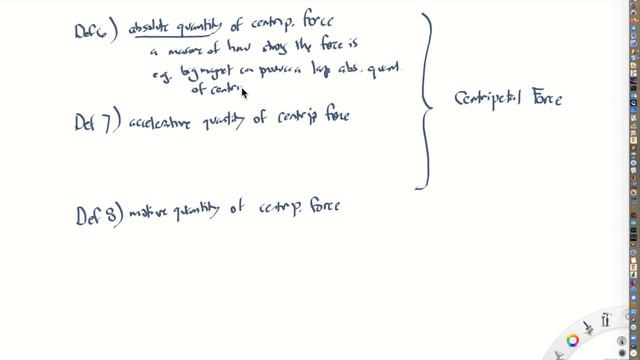 Def 6) absolute quantity of centrip. force
a measure of how strong the force is
e.g. big magnet can produce a large abs. quant.
of centri
Def 7) accelerative quantity of centrip force
Centripetal Force
Def 8) motive quantity of centrip. force